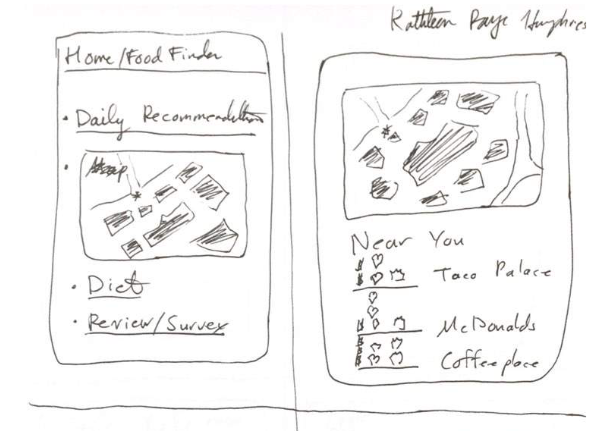 Kathleen Paige Humphries
Home/Food Finder
• Daily Recommendation
• Map
• Diet
• Review/Survey
Near You
$
$ Taco Palace
$ McDonalds
$
$ Coffee place